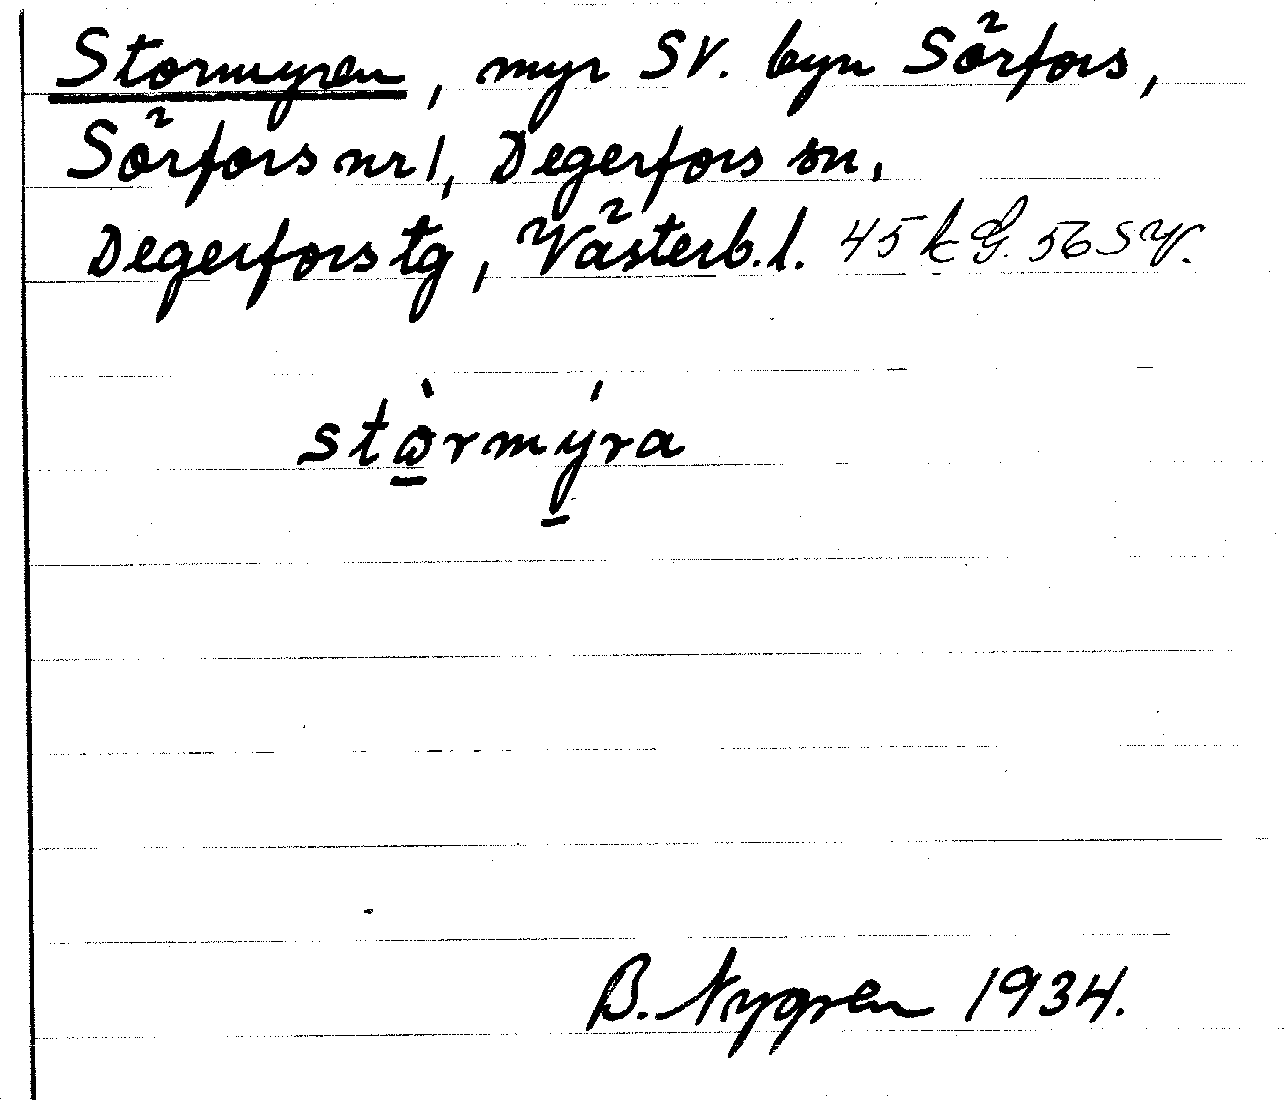 Stormyren, myr SV. byn Sörfors,
Sörfors nr 1, Degerfors sn,
Degerfors tg, Västerb. l. 45 k G. 56 SV.
stòrmýra
B. Nygren 1934.